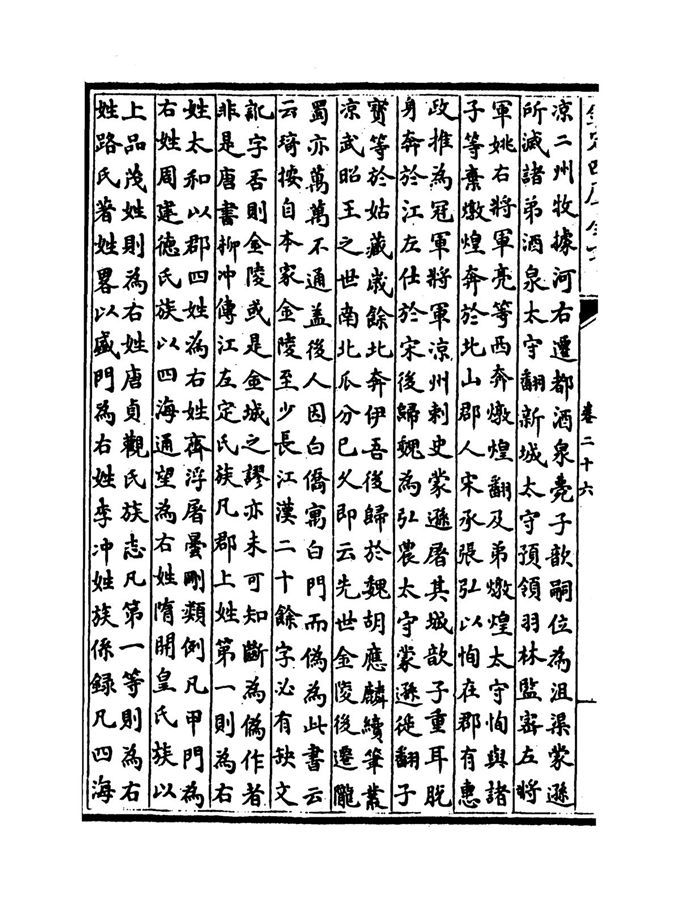 欽定四庫全書
卷二十六
涼二州牧據河右遷都酒泉薨子歆嗣位為沮渠蒙遜
所滅諸弟酒泉太守翻新城太守預領羽林監密左將
軍姚右將軍亮等西奔燉煌翻及弟燉煌太守恂與諸
子等棄燉煌奔於北山郡人宋承張弘以恂在郡有惠
政推為冠軍將軍涼州刺史蒙遜屠其城歆子重耳脫
身奔於江左仕於宋後歸魏為弘農太守蒙遜徙翻子
寳等於姑藏歲餘北奔伊吾後歸於魏胡應麟續筆叢
涼武昭王之世南北瓜分已久即云先世金陵後遷隴
蜀亦萬萬不通盖後人因白僑寓白門而偽為此書云
云琦按自本家金陵至少長江漢二十餘字必有缺文
訛字否則金陵或是金城之謬亦未可知斷為偽作者
非是唐書柳冲傳江左定氏族凡郡上姓第一則為右
姓太和以郡四姓為右姓齊浮屠曇剛類例凡甲門為
右姓周建德氏族以四海通望為右姓隋開皇氏族以
上品茂姓則為右姓唐貞觀氏族志凡第一等則為右
姓路氏著姓畧以盛門為右姓李冲姓族係録凡四海